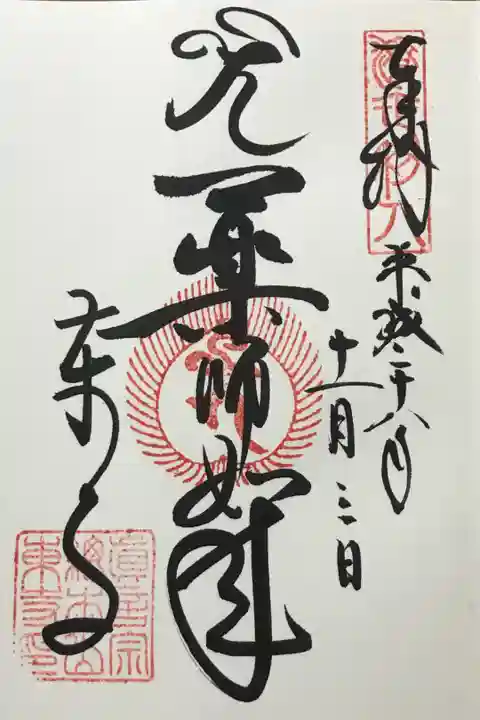 奉拝
平成二十八年
十一月三日
薬師如来
東寺
眞言宗
總本山